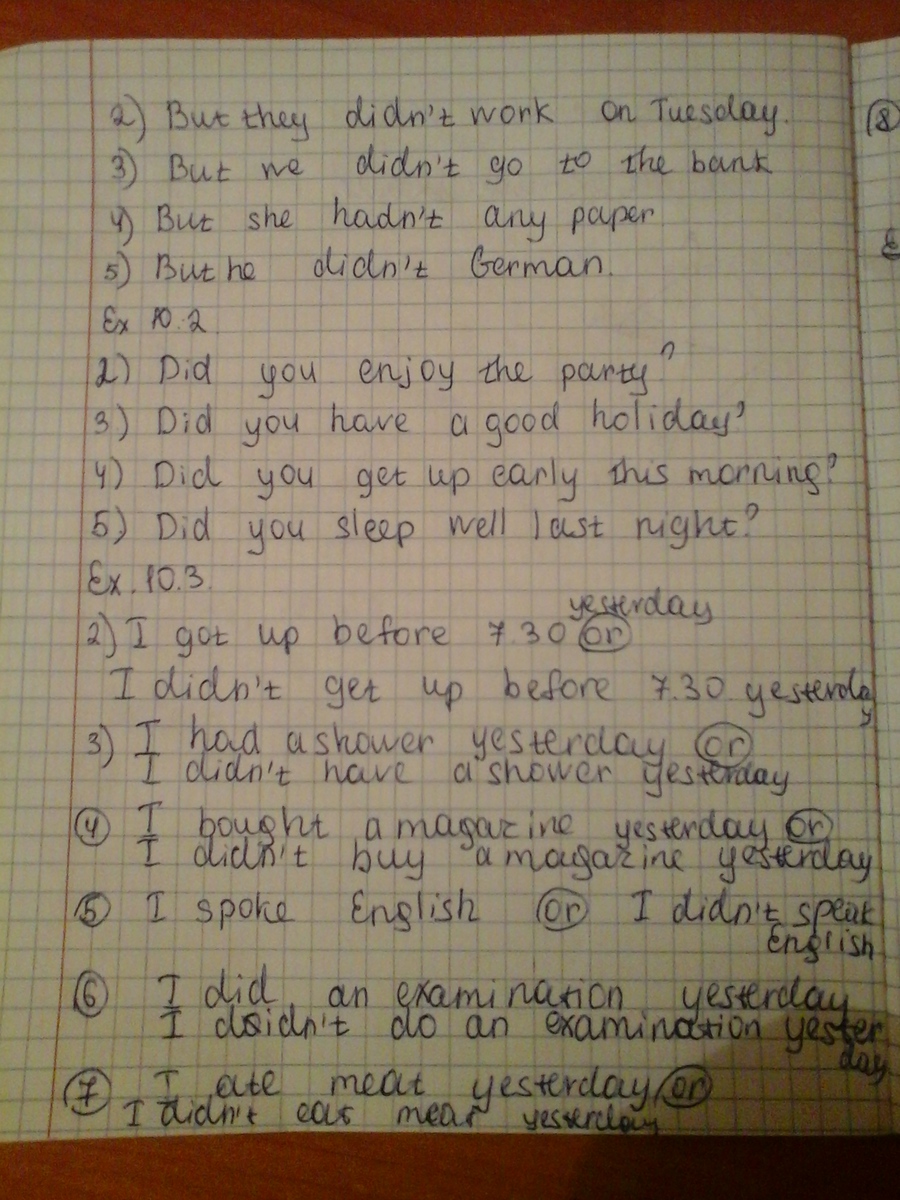 2) But they didn't work on Tuesday.
3) But we didn't go to the bank
4) But she hadn't any paper
5) But he didn't German.
Ex 10.2
2) Did you enjoy the party?
3) Did you have a good holiday?
4) Did you get up early this morning?
5) Did you sleep well last night?
Ex. 10.3.
yesterday
2) I got up before 7.30 or
I didn't get up before 7.30 yesterday
3) I had a shower yesterday or
I didn't have a shower yesterday
4 I bought a magazine yesterday or
I didn't buy a magazine yesterday
5 I spoke English or I didn't speak
English
6 I did an examination yesterday
I didn't do an examination yester
day
7 I ate meat yesterday or
I didn't eat meat yesterday
8